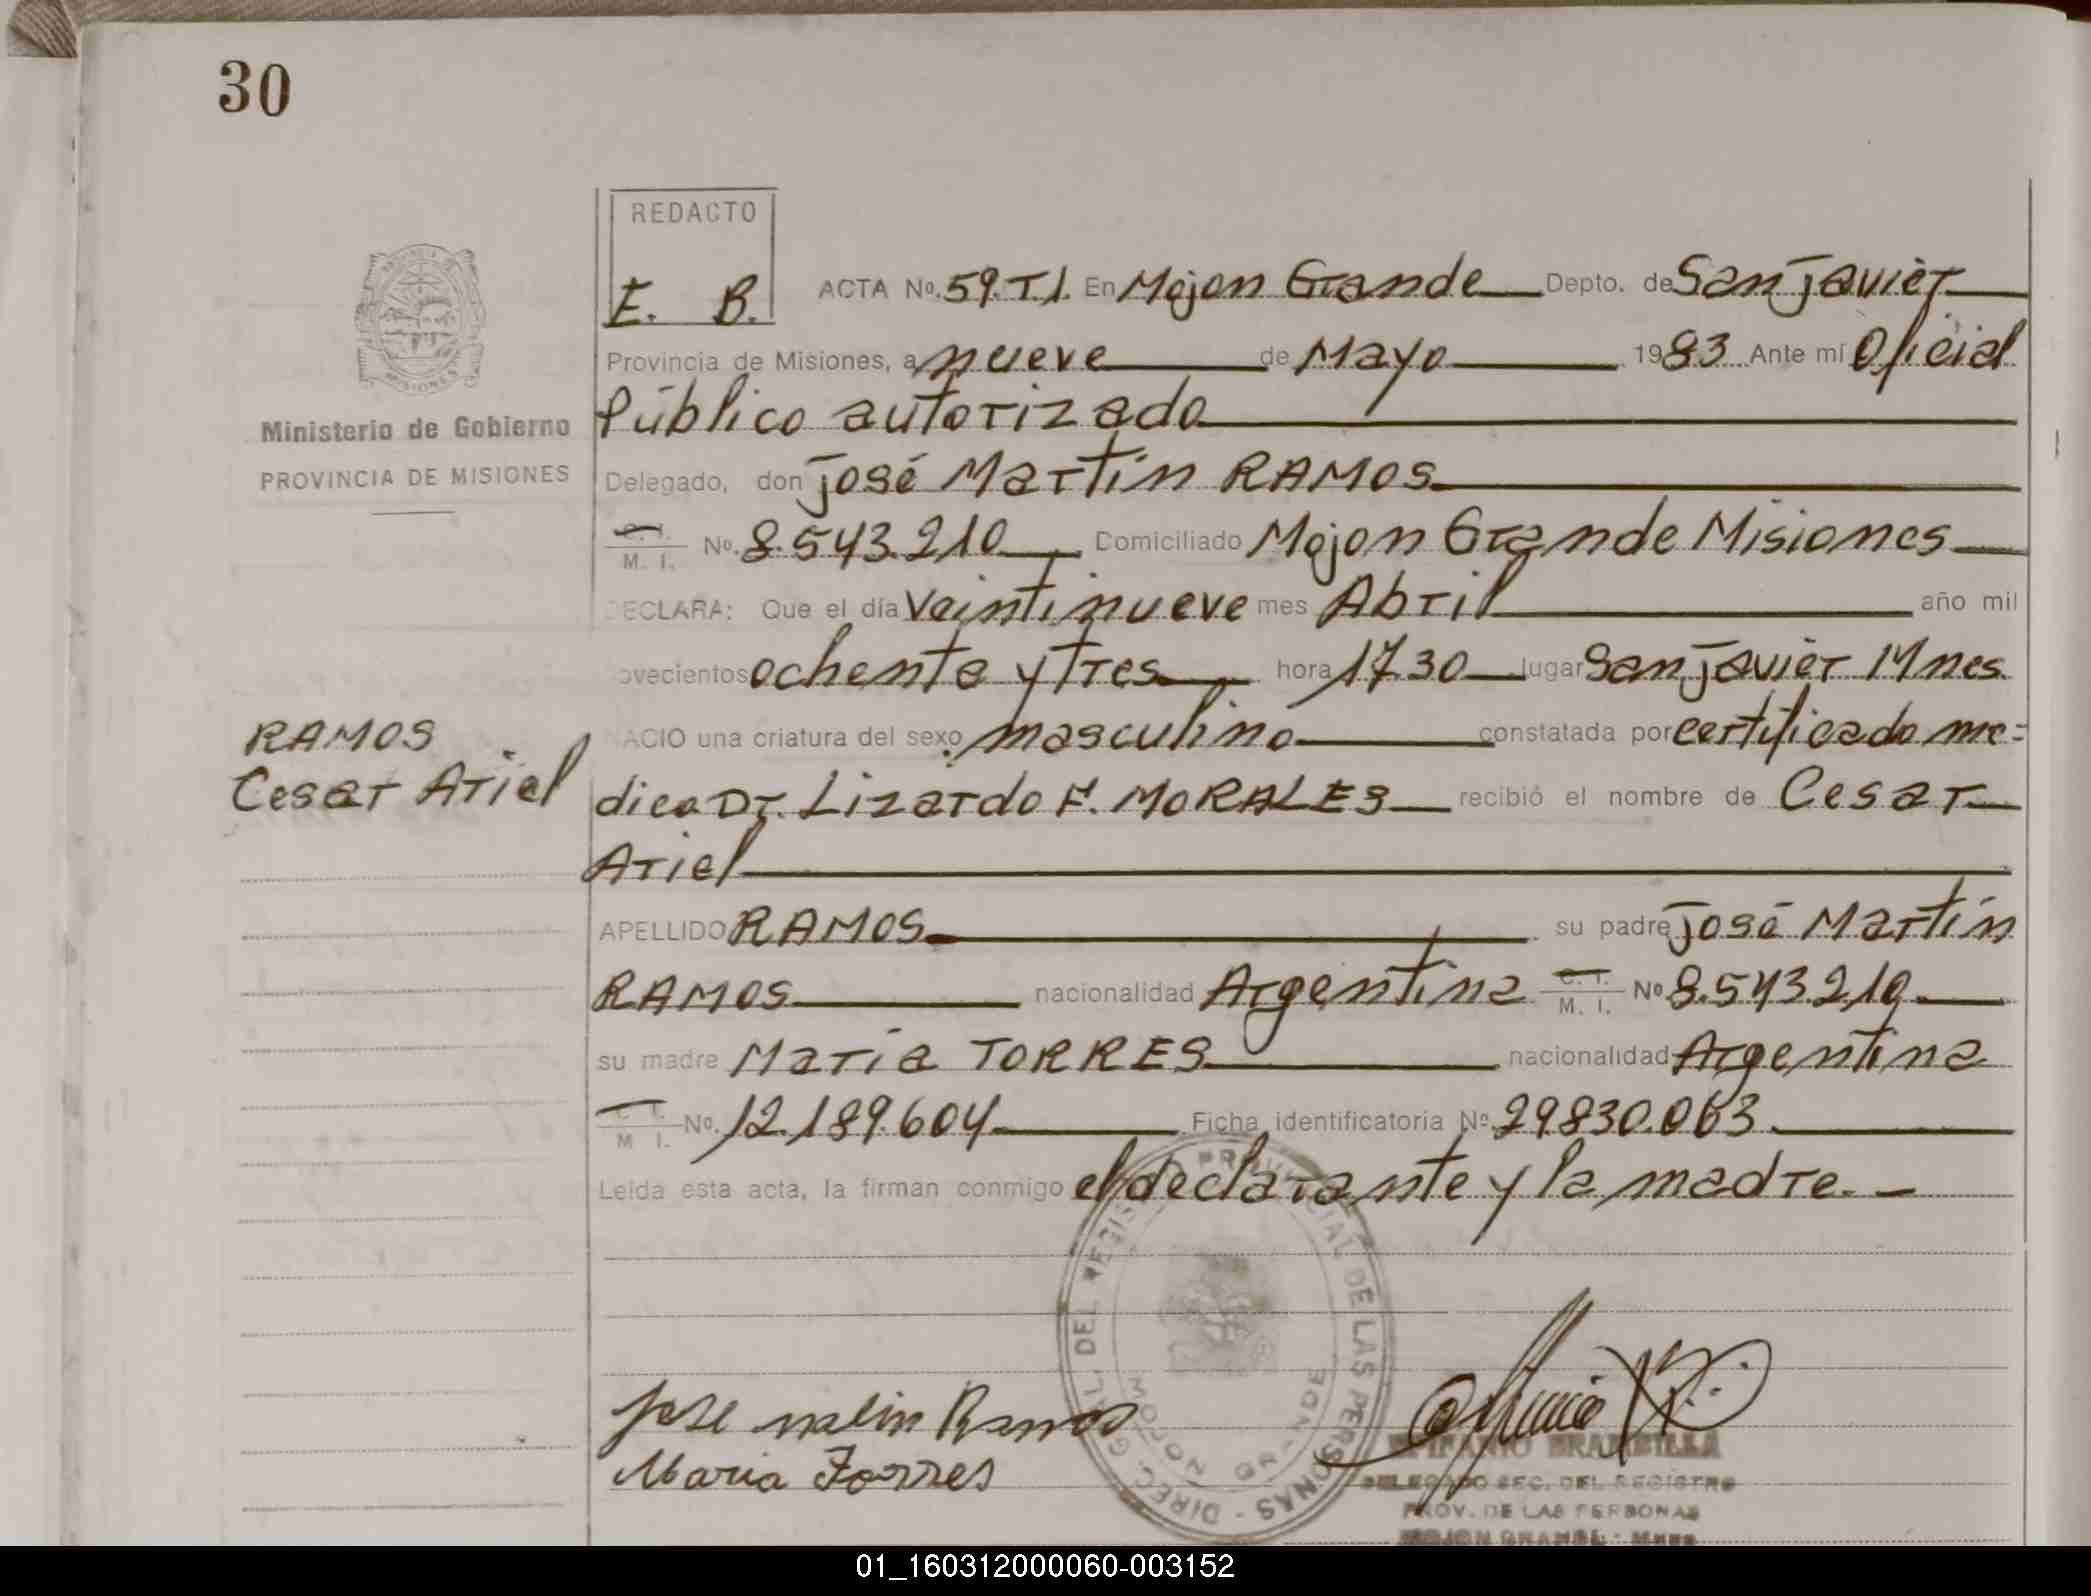 30
REDACTO
E. B.
ACTA No. 59.T1. En Mojon Grande Depto. de San Javier
Provincia de Misiones, a nueve de Mayo 1983 Ante mí Oficial
Público autorizado
Ministerio de Gobierno
PROVINCIA DE MISIONES
Delegado, don José Martín RAMOS
C. I. M. I. No. 8.543.210 Domiciliado Mojon Grande Misiones
DECLARA: Que el día veintinueve mes Abril año mil
novecientos ochenta y tres hora 17.30 lugar San Javier Mnes.
NACIO una criatura del sexo masculino constatada por certificado me=
RAMOS
Cesar Ariel
dico Dr. Lizardo F. MORALES recibió el nombre de Cesar
Ariel
APELLIDO RAMOS su padre José Martín
RAMOS nacionalidad Argentina C. I. M. I. No 8.543.210
su madre María TORRES nacionalidad Argentina
C. I. M. I. No. 12.189.604 Ficha identificatoria No. 29830.063
Leída esta acta, la firman conmigo el declarante y la madre. -
DIREC. GRAL. DEL REGIST. PROVINCIAL DE LAS PERSONAS -
MOJON GRANDE
Jose Ramos
Maria Torres
EPIFANIO BRAMBILLA
DELEGADO SEC. DEL REGISTRO
PROV. DE LAS PERSONAS
MOJON GRANDE - Mnes
01_160312000060-003152